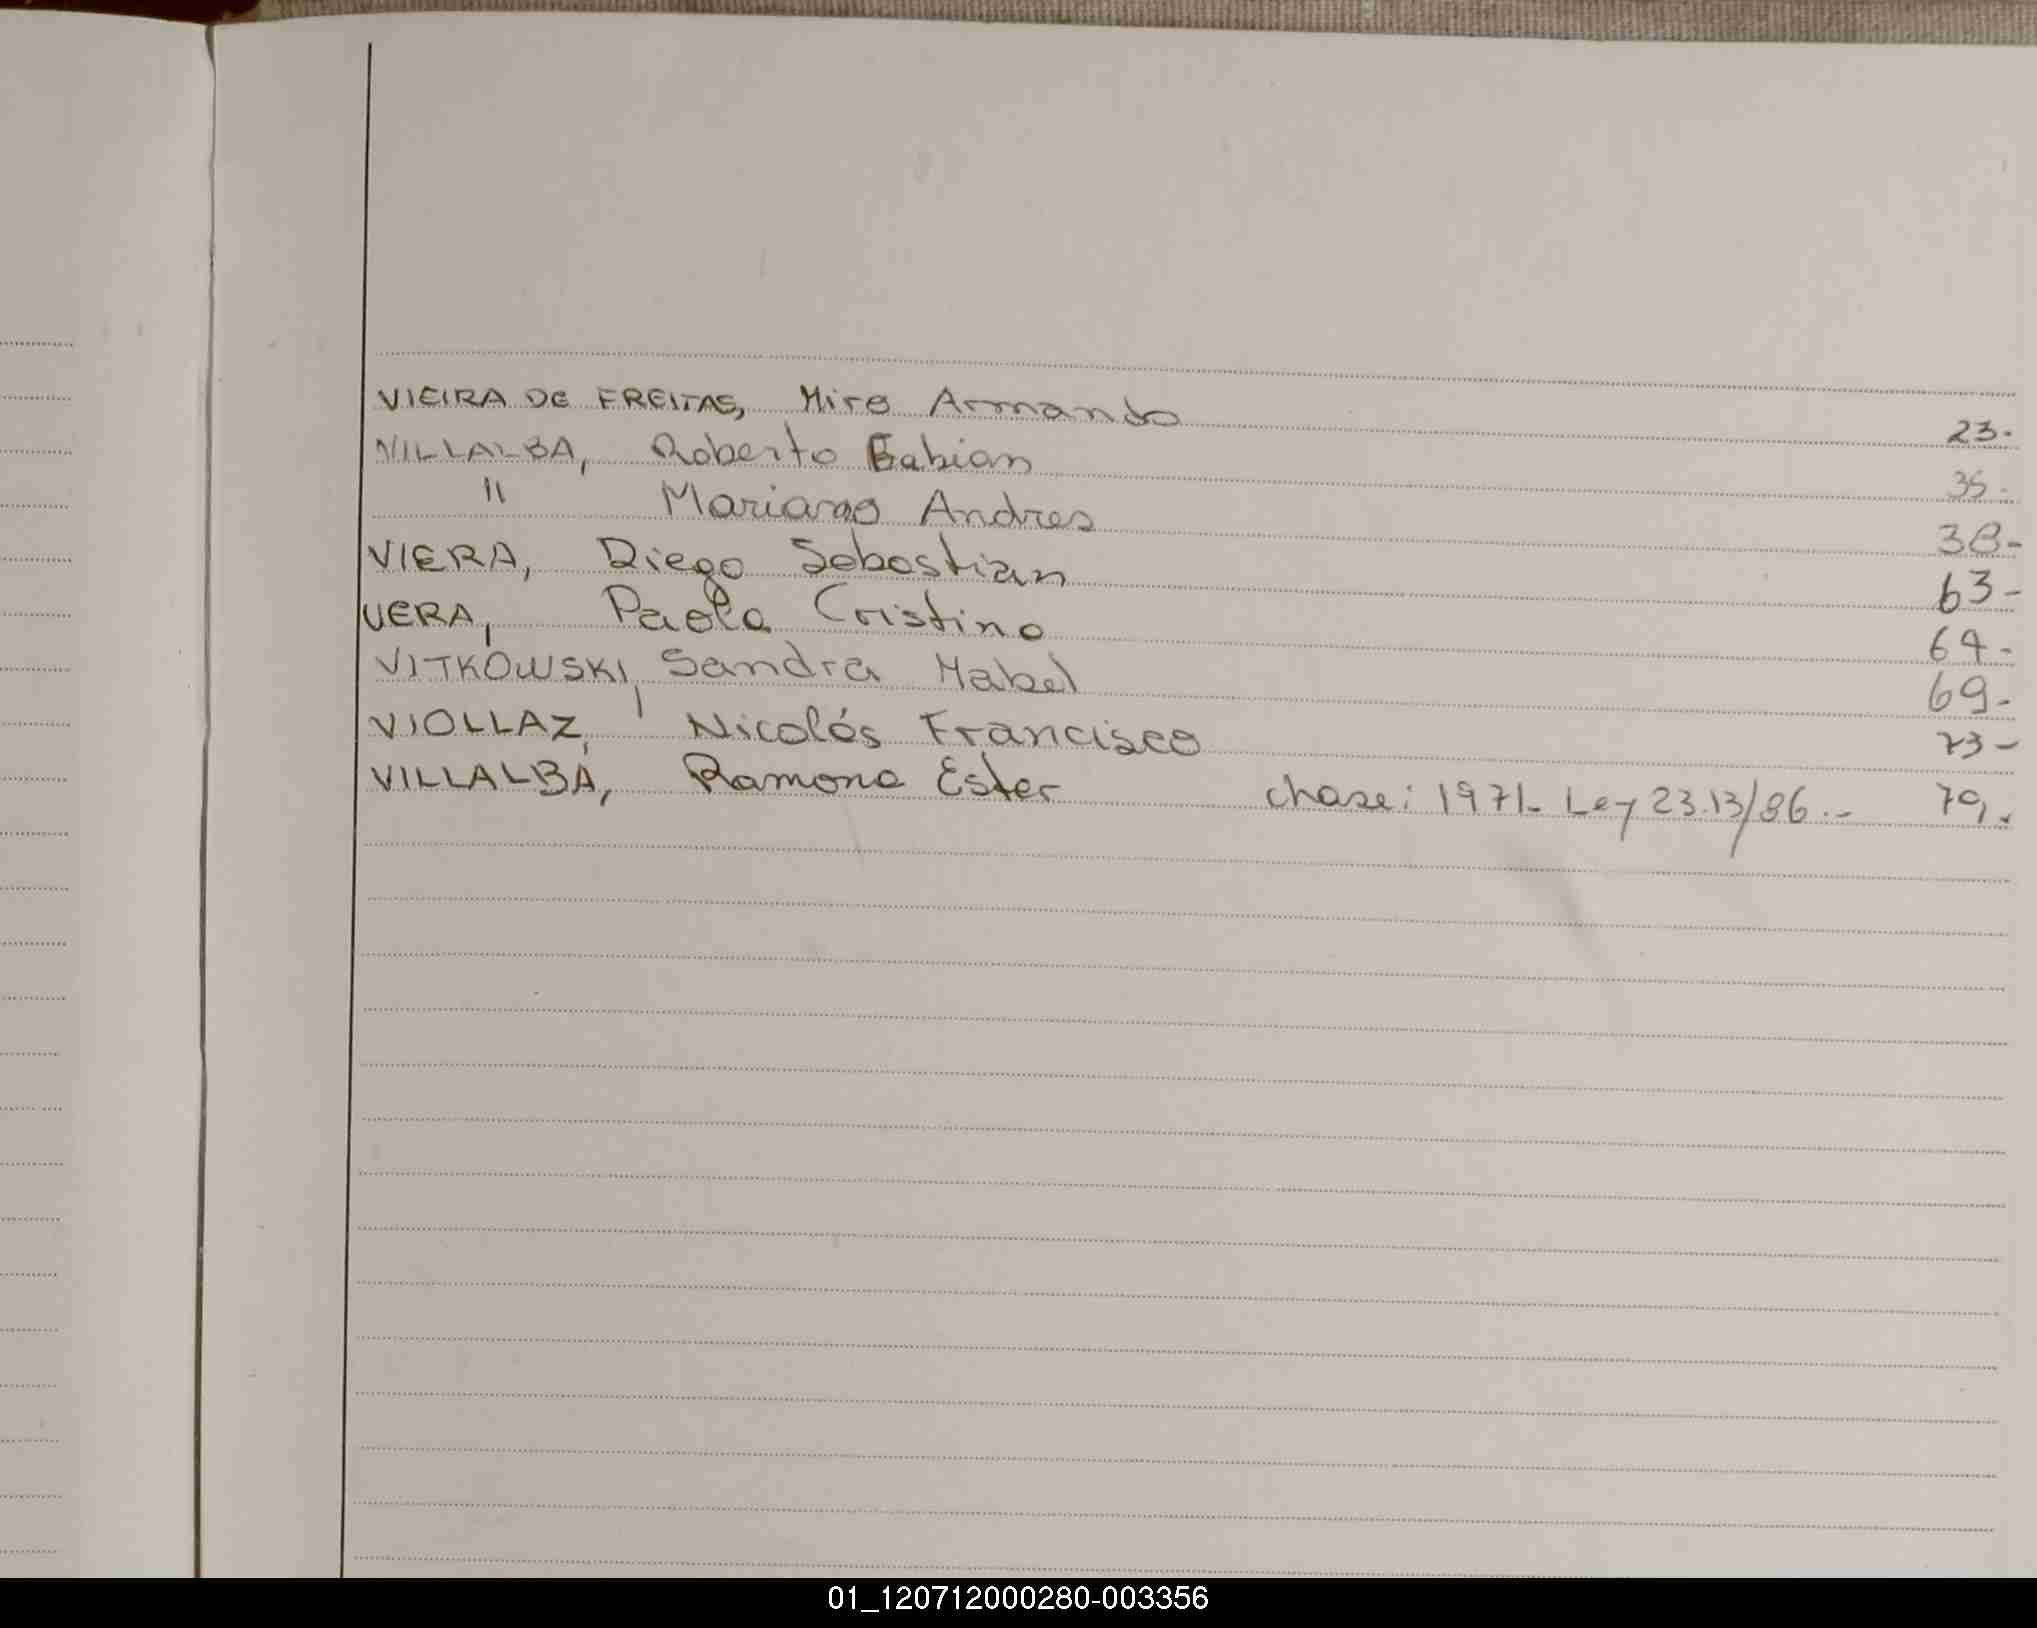 VIEIRA DE FREITAS, Miro Armando 23.
VILLALBA, Roberto Fabian 35.
" Mariano Andres 38-
VIERA, Diego Sebastian 63-
VERA, Paola Cristina 64.
VITKOWSKI, Sandra Mabel 69.
VIOLLAZ, Nicolás Francisco 73-
VILLALBA, Ramona Ester clase: 1971- Ley 23.13/86.- 79.
01_120712000280-003356